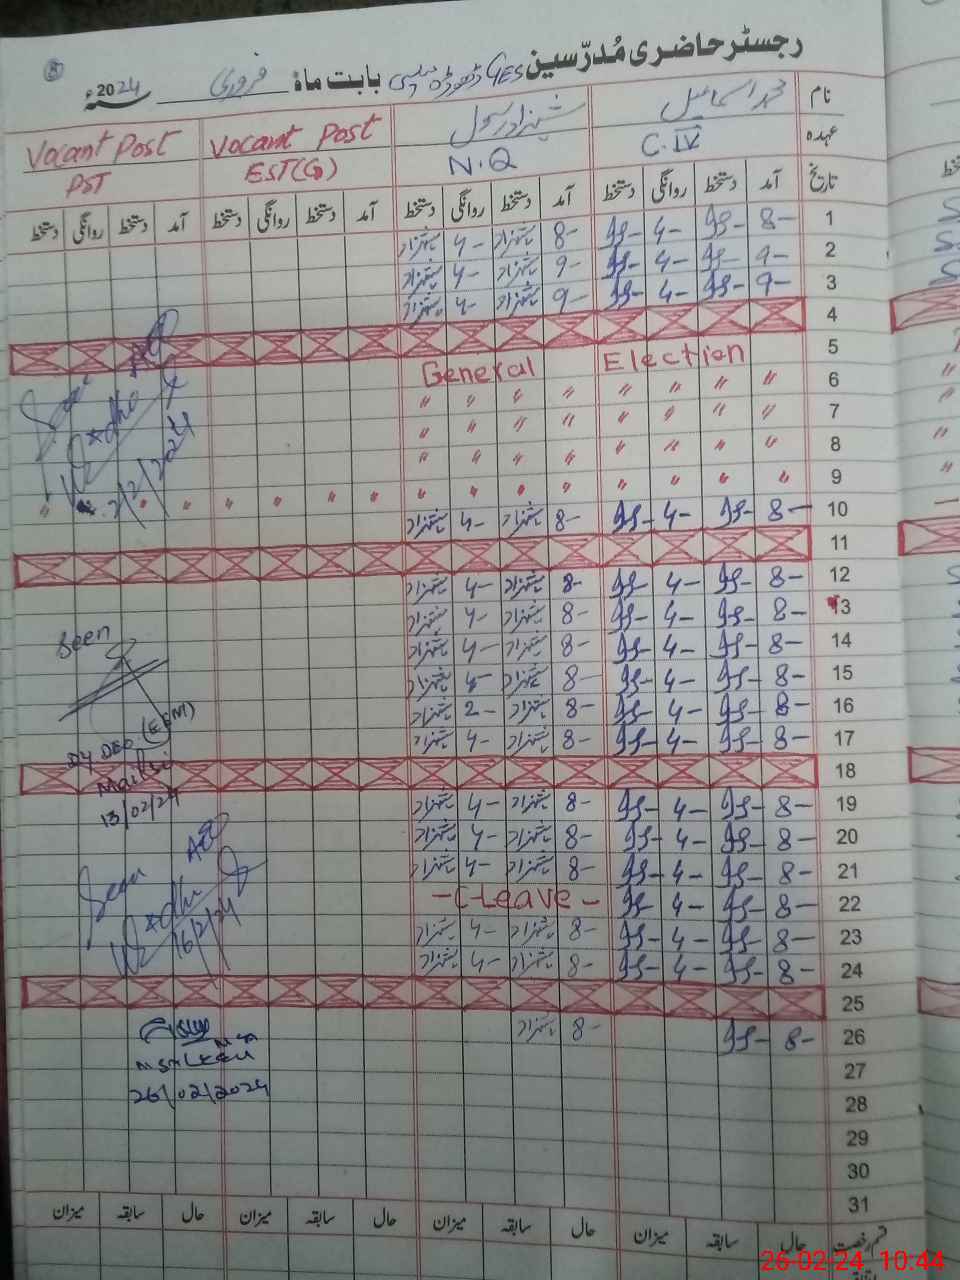 رجسٹر حاضری مُدرّسین GES بابت ماہٴ فروری سنہ 2024ء
نام محمد اسماعیل شہزاد رسول Vacant Post Vacant Post
عہدہ C.IV N.Q EST(G) PST
تاریخ آمد دستخط روانگی دستخط آمد دستخط روانگی دستخط آمد دستخط روانگی دستخط آمد دستخط روانگی دستخط
1 8- 4- 8- شہزاد 4- شہزاد
2 9- 4- 9- شہزاد 4- شہزاد
3 9- 4- 9- شہزاد 4- شہزاد
4
5 General Election
6 " " " " " " " "
7 " " " " " " " "
8 " " " " " " " "
9 " " " " " " " " " " " " " " "
10 8- 4- 8- شہزاد 4- شہزاد
11
12 8- 4- 8- شہزاد 4- شہزاد
13 8- 4- 8- شہزاد 4- شہزاد
14 8- 4- 8- شہزاد 4- شہزاد
15 8- 4- 8- شہزاد 4- شہزاد
16 8- 4- 8- شہزاد 2- شہزاد
17 8- 4- 8- شہزاد 4- شہزاد
18
19 8- 4- 8- شہزاد 4- شہزاد
20 8- 4- 8- شہزاد 4- شہزاد
21 8- 4- 8- شہزاد 4- شہزاد
22 8- 4- -C-Leave-
23 8- 4- 8- شہزاد 4- شہزاد
24 8- 4- 8- شہزاد 4- شہزاد
25
26 8- 8- شہزاد
27
28
29
30
31
قسم رخصت حال سابقہ میزان حال سابقہ میزان حال سابقہ میزان
Seen
2/2/2024
Seen
Dy DEO (EEM)
Mailsi
13/02/24
Seen
16/2/24
26/02/2024
26-02-24 10:44